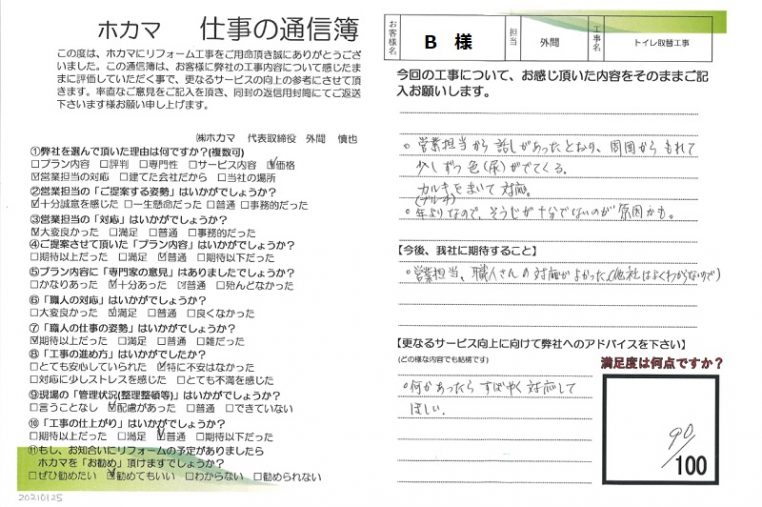 ホカマ 仕事の通信簿
この度は、ホカマにリフォーム工事をご用命頂き誠にありがとうござ
いました。この通信簿は、お客様に弊社の工事内容について感じたま
まに評価していただく事で、更なるサービスの向上の参考にさせて頂
きます。率直なご意見をご記入を頂き、同封の返信用封筒にてご返送
下さいます様お願い申し上げます。
㈱ホカマ 代表取締役 外間 慎也
①弊社を選んで頂いた理由は何ですか?(複数可)
□プラン内容 □評判 □専門性 □サービス内容 ☑価格
☑営業担当の対応 □建てた会社だから □当社の場所
②営業担当の「ご提案する姿勢」はいかがでしょうか?
☑十分誠意を感じた □一生懸命だった □普通 □事務的だった
③営業担当の「対応」はいかがでしょうか?
☑大変良かった □満足 □普通 □事務的だった
④ご提案させて頂いた「プラン内容」はいかがでしょうか?
□期待以上だった □満足 ☑普通 □期待以下だった
⑤プラン内容に「専門家の意見」はありましたでしょうか?
□かなりあった ☑十分あった □普通 □殆んどなかった
⑥「職人の対応」はいかがでしょうか?
□大変良かった ☑満足 □普通 □良くなかった
⑦「職人の仕事の姿勢」はいかがでしょうか?
☑期待以上だった □満足 □普通 □雑だった
⑧「工事の進め方」はいかがでしたか?
□とても安心していられた ☑特に不安はなかった
□対応に少しストレスを感じた □とても不満を感じた
⑨現場の「管理状況(整理整頓等)」はいかがでしょうか?
□言うことなし ☑配慮があった □普通 □できていない
⑩「工事の仕上がり」はいかがでしょうか?
□期待以上だった □満足 ☑普通 □期待以下だった
⑪もし、お知合いにリフォームの予定がありましたら
ホカマを「お勧め」頂けますでしょうか?
□ぜひ勧めたい ☑勧めてもいい □わからない □勧められない
20210125
お客様名 B 様 担当 外間 工事名 トイレ取替工事
今回の工事について、お感じ頂いた内容をそのままご記
入お願いします。
○営業担当から話しがあったとおり、周囲からもれて
少しずつ色(尿)がでてくる。
カルキをまいて対応。
○年よりなので、そうじが十分でないのが原因かも。
【今後、我社に期待すること】
○営業担当、職人さんの対応がよかった(他社はよくわからないので)
【更なるサービス向上に向けて弊社へのアドバイスを下さい】
(どの様な内容でも結構です)
満足度は何点ですか?
○何かあったらすばやく対応して
ほしい。
90/100